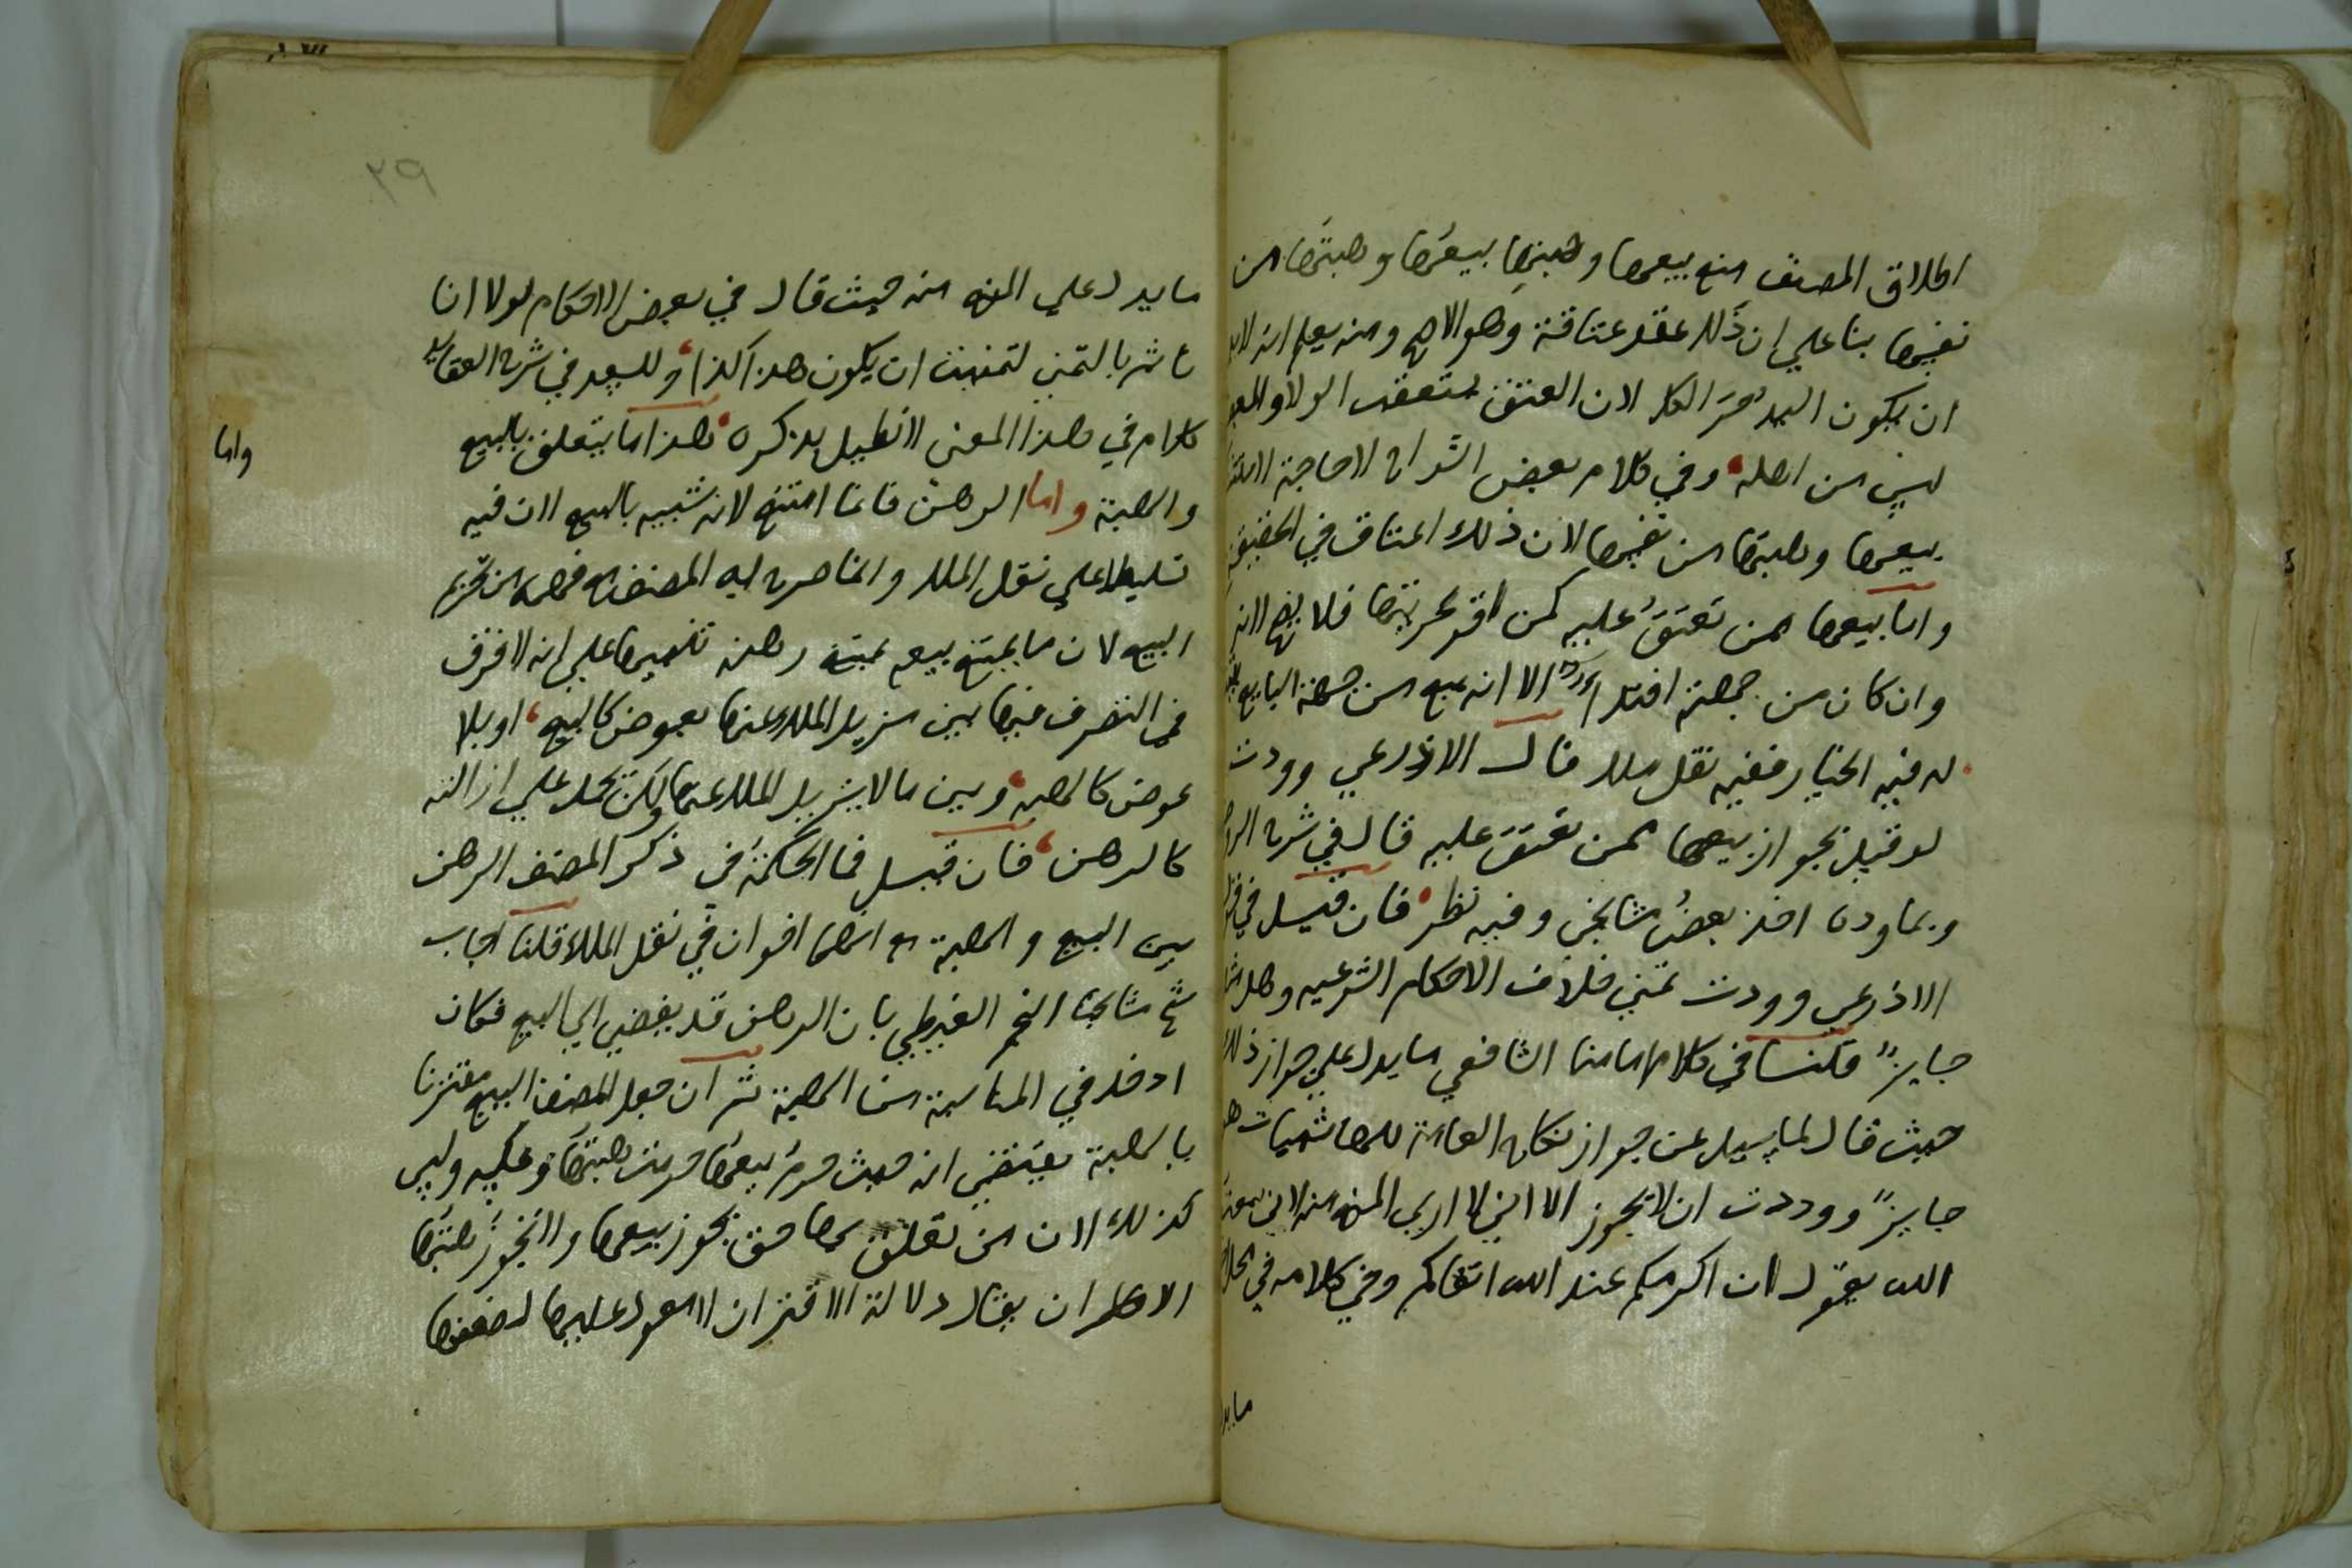 اطلاق المصنف منع بيعها وهبتها بيعها وهبتها من
نفسها بنا علي ان ذلك عقد عتاقة وهو الاصح ومنه يعلم انه لابد
ان يكون السيد حر الكل لان العتق يستعقب الولاو المبعض
ليس من اهله وفي كلام بعض الشراح لا حاجة
بيعها وهبتها من نفسها لان ذلك اعتاق في الحقيقة
واما بيعها ممن تعتق عليه كمن اقر بحريتها فلا يصح لانه
وان كان من جهته افتدا الا انه بيع من جهة البايع
له فيه الخيار ففيه نقل ملك قال الاذرعي وودت
لو قيل بجواز بيعها ممن تعتق عليه قال في شرح
وبما وده اخذ بعض مشايخي وفيه نظر فان قيل في
الاذرعي وودت تمني خلاف الاحكام الشرعيه وهل
جايز قلنا في كلام امامنا الشافعي ما يدل علي جواز ذلك
حيث قال لما سيل عن جواز نكاح العامة للهاشميات
جايز ووددت ان لا يجوز الا اني لا اري المنع منه لاني سمعت
الله يقول ان اكرمكم عند الله اتقاكم وفي كلامه في
ما يد
ما يدل علي المنع منه حيث قال في بعض الاحكام لولا انا
لا ناثم بالتمني لتمنيت ان يكون هذا كذا وللسعد في شرح العقايد
كلام في هذا المعنى لا نطيل بذكره هذا ما يتعلق بالبيع
والهبة واما الرهن فانما امتنع لانه شبيه بالبيع لان فيه
تسليطا علي نقل الملك وانما صرح به المصنف مع فهمه من تحريم
البيع لان ما يمتنع بيعه يمتنع رهنه تنبيها علي انه لا فرق
في التصرف فيها بين مزيل الملك عنها بعوض كالبيع او بلا
عوض كالهبه وبين ما لا يزيل الملك عنها ولكن يحمل علي ازالته
كالرهن فان قيل فما الحكمة في ذكر المصنف الرهن
بين البيع والهبة مع انهما اخوان في نقل الملك قلنا اجاب
شيخ مشايخنا النجم الغيطي بان الرهن قد يفضي الي البيع فكان
ادخل في المناسبة من الهبة ثم ان جعل المصنف البيع مقترنا
بالهبة يقتضي انه حيث حرم بيعها حرمت هبتها وعكسه وليس
كذلك لان من تعلق بها حق يجوز بيعها ولا تجوز هبتها
الا ان يقال دلالة الاقتران لا يعول عليها لضعفها
واما
٢٩